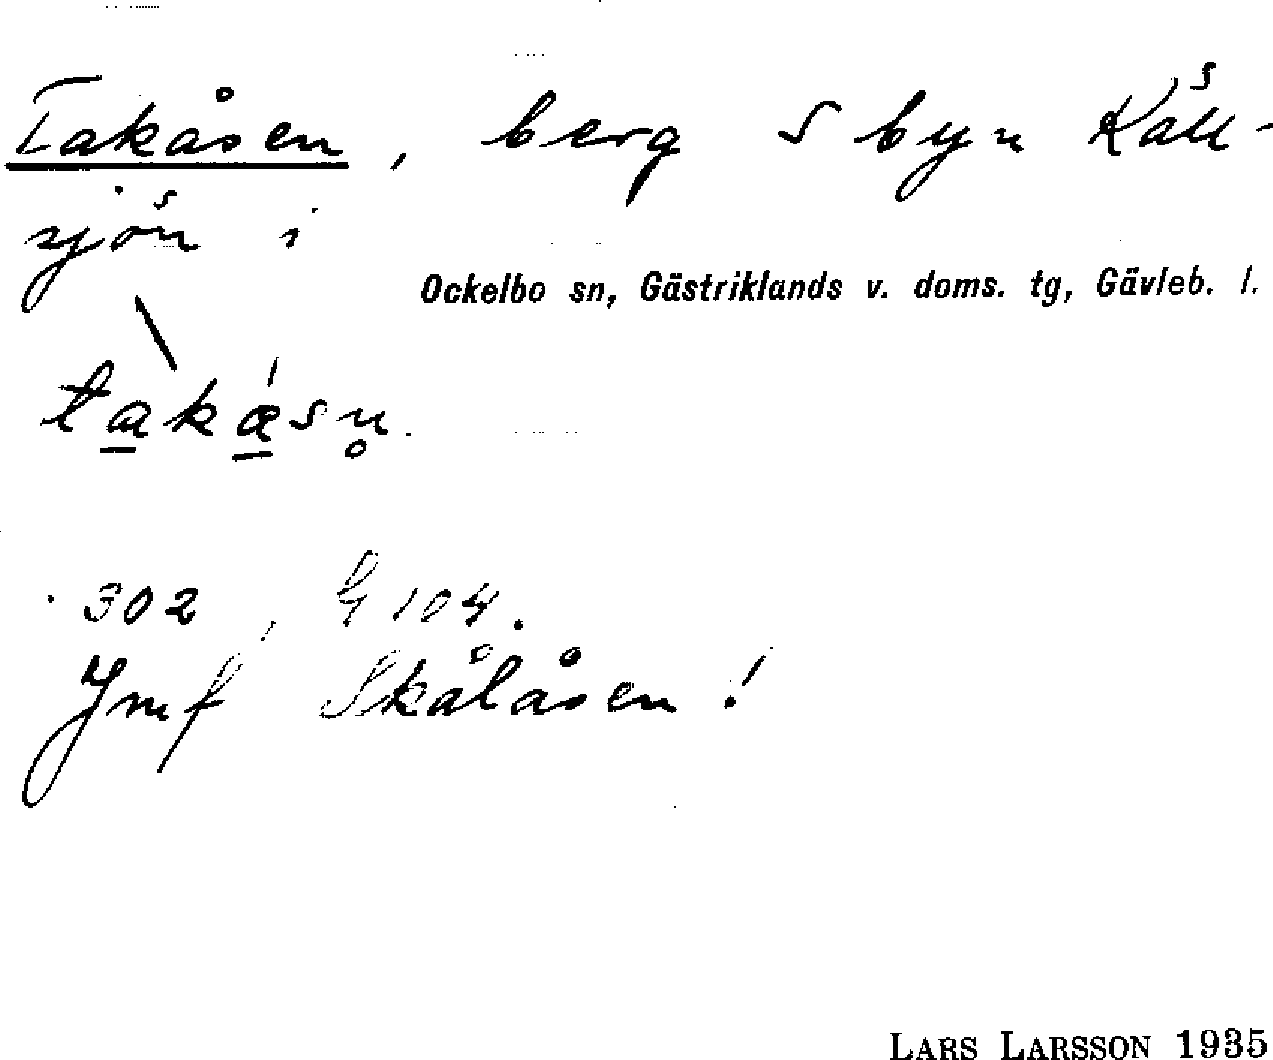 Takåsen, berg S byn Käll-
sjön i
Ockelbo sn, Gästriklands v. doms. tg, Gävleb. l.
takåsn.
302, G 104.
Jmf Skålåsen!
LARS LARSSON 1935